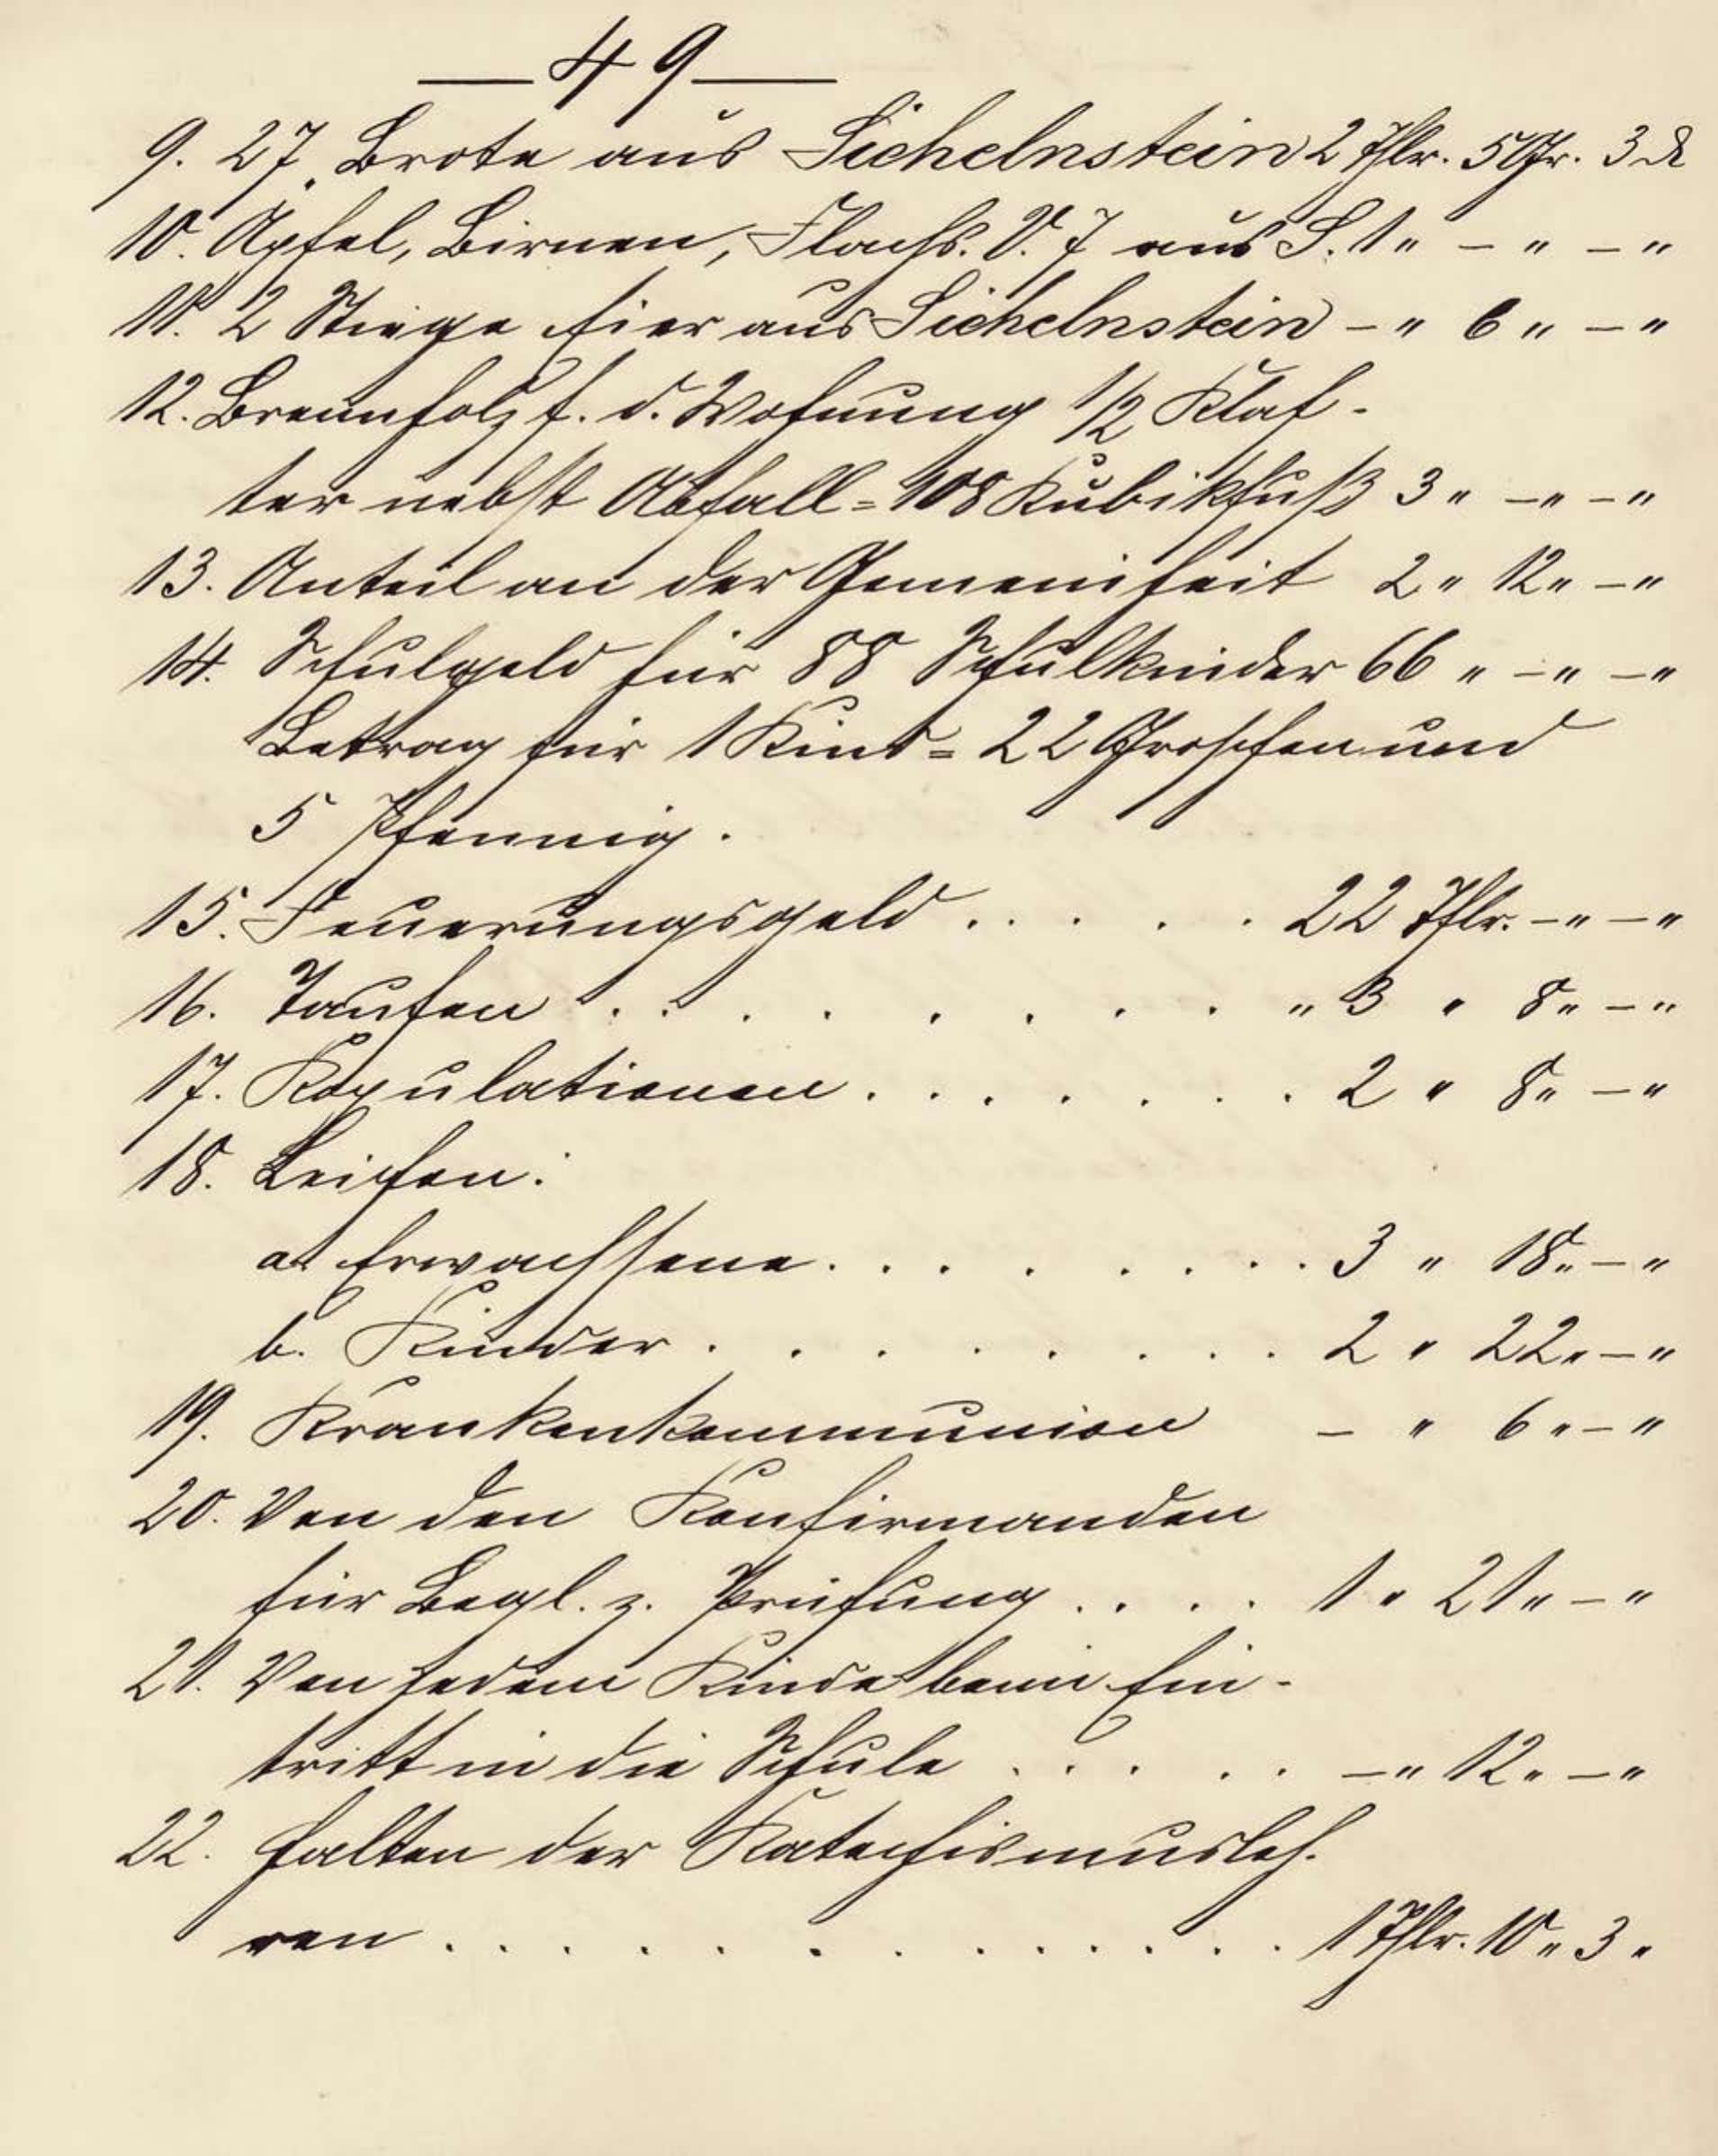 — 49 —
9. 27 „ Brote aus Sichelnstein 2 Thlr. 5 Gr. 3 ₰
10. Äpfel, Birnen, Flachs. V. 7 aus S. 1 " – " – "
11. 2 Stiege Eier aus Sichelnstein – " 6 " – "
12. Brennholz f. d. Wohnung 1/2 Klaf-
ter nebst Abfall = 108 Kubikfuß 3 " – " – "
13. Anteil an der Gemeinheit 2 " 12 " – "
14. Schulgeld für 88 Schulkinder 66 " – " – "
Betrag für 1 Kind = 22 Groschen und
5 Pfennig.
15. Feuerungsgeld . . . . . 22 Thlr. – " – "
16. Taufen . . . . . . . . . " 3 " 8 " – "
17. Kopulationen . . . . . . . . 2 " 8 " – "
18. Leichen:
a. Erwachsene . . . . . . . . . 3 " 18 " – "
b. Kinder . . . . . . . . . 2 " 22 " – "
19. Krankenkommunion – " 6 " – "
20. Von den Konfirmanden
für Begl. z. Prüfung . . . . 1 " 21 " – "
21. Von jedem Kinde beim Ein-
tritt in die Schule . . . . . – " 12 " – "
22. Halten der Katechismusleh-
ren . . . . . . . . . . . . . 1 Thlr. 10 " 3 "